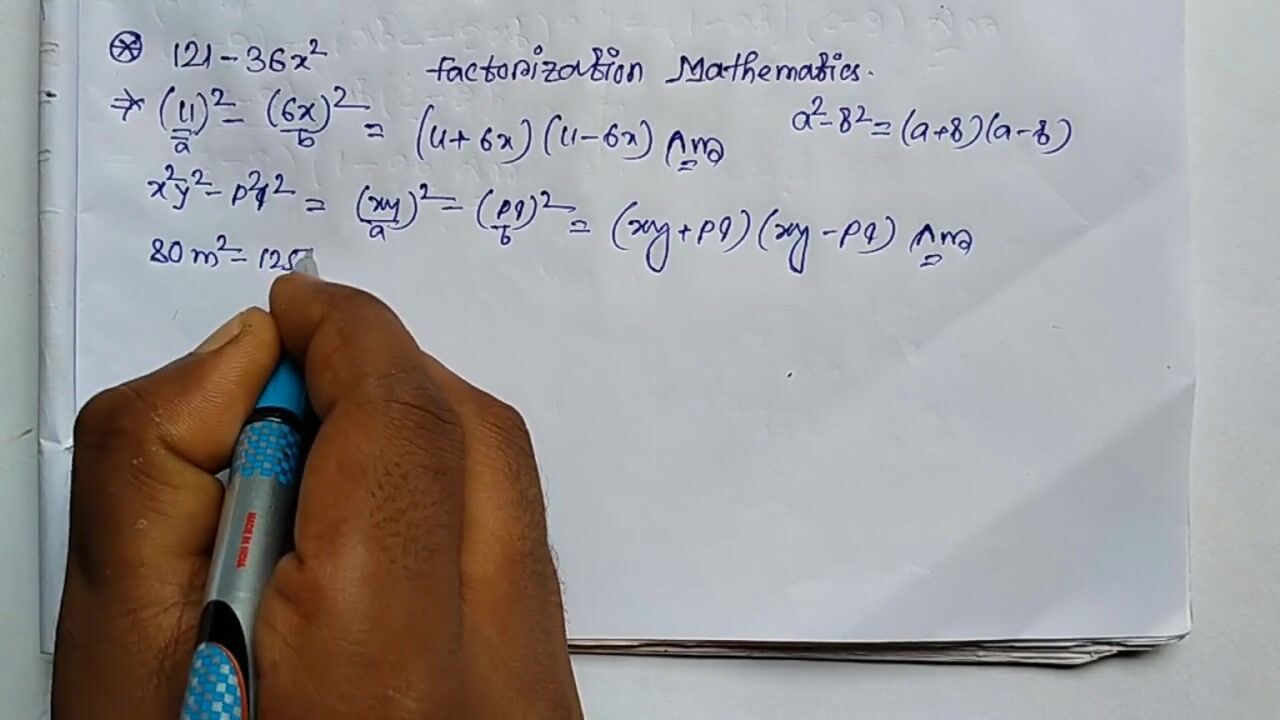 ⊛ 121 - 36x² Factorization Mathematics.
⇒ (11)² - (6x)² = (11 + 6x) (11 - 6x) Ans a² - b² = (a + b) (a - b)
a b
x²y² - p²q² = (xy)² - (pq)² = (xy + pq) (xy - pq) Ans
a b
80 m² - 125
MADE IN INDIA